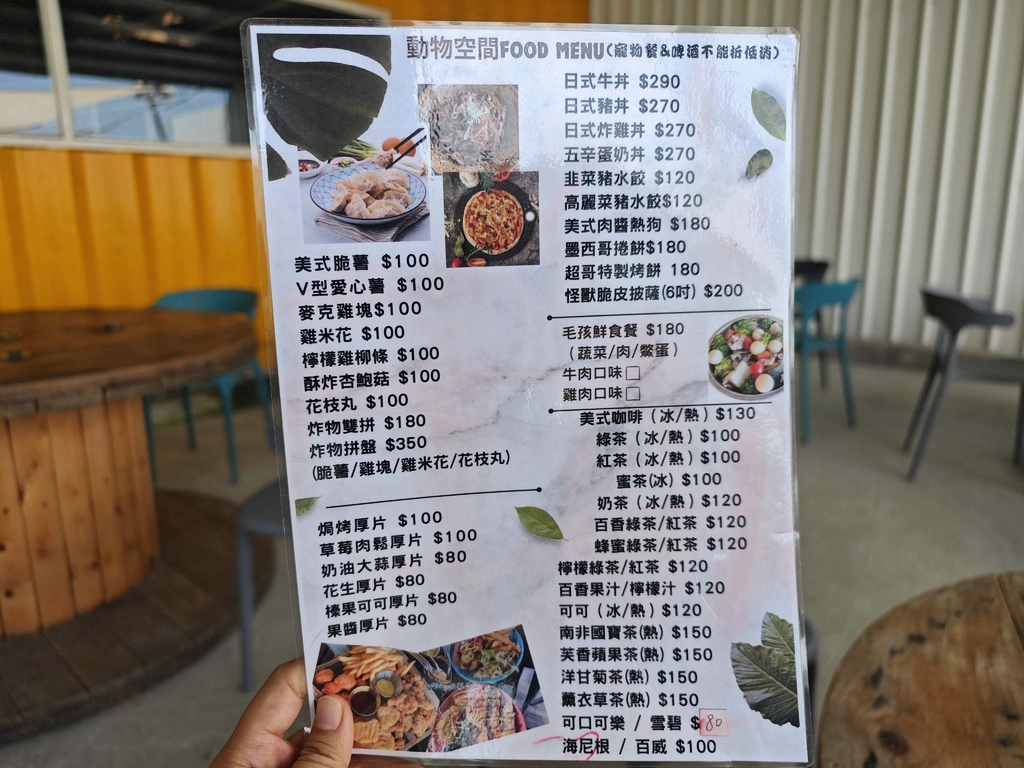 動物空間FOOD MENU(寵物餐&啤酒不能折低消)
美式脆薯 $100
V型愛心薯 $100
麥克雞塊$100
雞米花 $100
檸檬雞柳條 $100
酥炸杏鮑菇 $100
花枝丸 $100
炸物雙拼 $180
炸物拼盤 $350
(脆薯/雞塊/雞米花/花枝丸)
焗烤厚片 $100
草莓肉鬆厚片 $100
奶油大蒜厚片 $80
花生厚片 $80
榛果可可厚片 $80
果醬厚片 $80
日式牛丼 $290
日式豬丼 $270
日式炸雞丼 $270
五辛蛋奶丼 $270
韭菜豬水餃 $120
高麗菜豬水餃$120
美式肉醬熱狗 $180
墨西哥捲餅$180
超哥特製烤餅 180
怪獸脆皮披薩(6吋) $200
毛孩鮮食餐 $180
(蔬菜/肉/鱉蛋)
牛肉口味□
雞肉口味□
美式咖啡(冰/熱)$130
綠茶(冰/熱)$100
紅茶(冰/熱)$100
蜜茶(冰) $100
奶茶(冰/熱)$120
百香綠茶/紅茶 $120
蜂蜜綠茶/紅茶 $120
檸檬綠茶/紅茶 $120
百香果汁/檸檬汁 $120
可可(冰/熱)$120
南非國寶茶(熱) $150
芙香蘋果茶(熱) $150
洋甘菊茶(熱) $150
薰衣草茶(熱) $150
可口可樂 / 雪碧 $80
海尼根 / 百威 $100